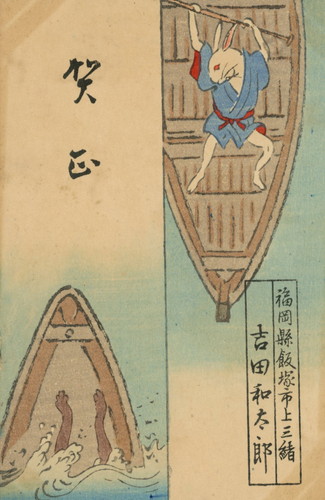 賀正
福岡縣飯塚市上三緒
吉田和太郎